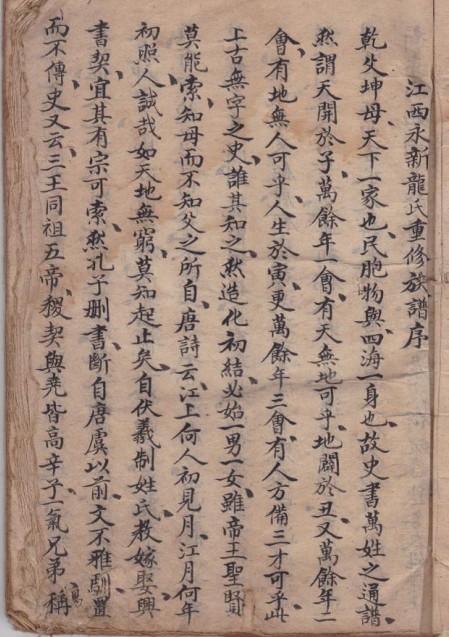 江西永新龍氏重修族譜序
乾父坤母天下一家也民胞物與四海一身也故史書萬姓之通譜
然謂天開於子萬餘年一會有天無地可乎地闢於丑又萬餘年二
會有地無人可乎人生於寅更萬餘年三會有人方備三才可乎此
上古無字之史誰其知之然造化初結必始一男一女雖帝王聖賢
莫能索知母而不知父之所自唐詩云江上何人初見月江月何年
初照人誠哉如天地無窮莫知起止矣自伏羲制姓氏教嫁娶興
書契宜其有宗可索然孔子刪書斷自唐虞以前文不雅馴置
而不傳史又云三王同祖五帝稷契與堯皆高辛子一氣兄弟稱